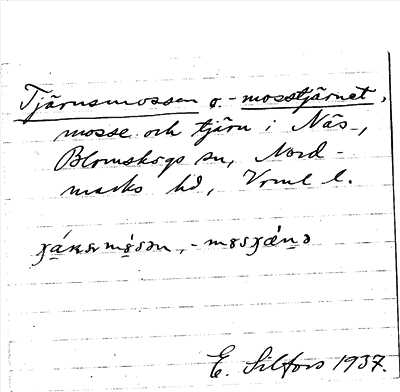 Tjärnsmossen o. -mosstjärnet,
mosse och tjärn i Näs-,
Blomskogs sn, Nord-
marks hd, Vrml l.
E. Silfors 1937.